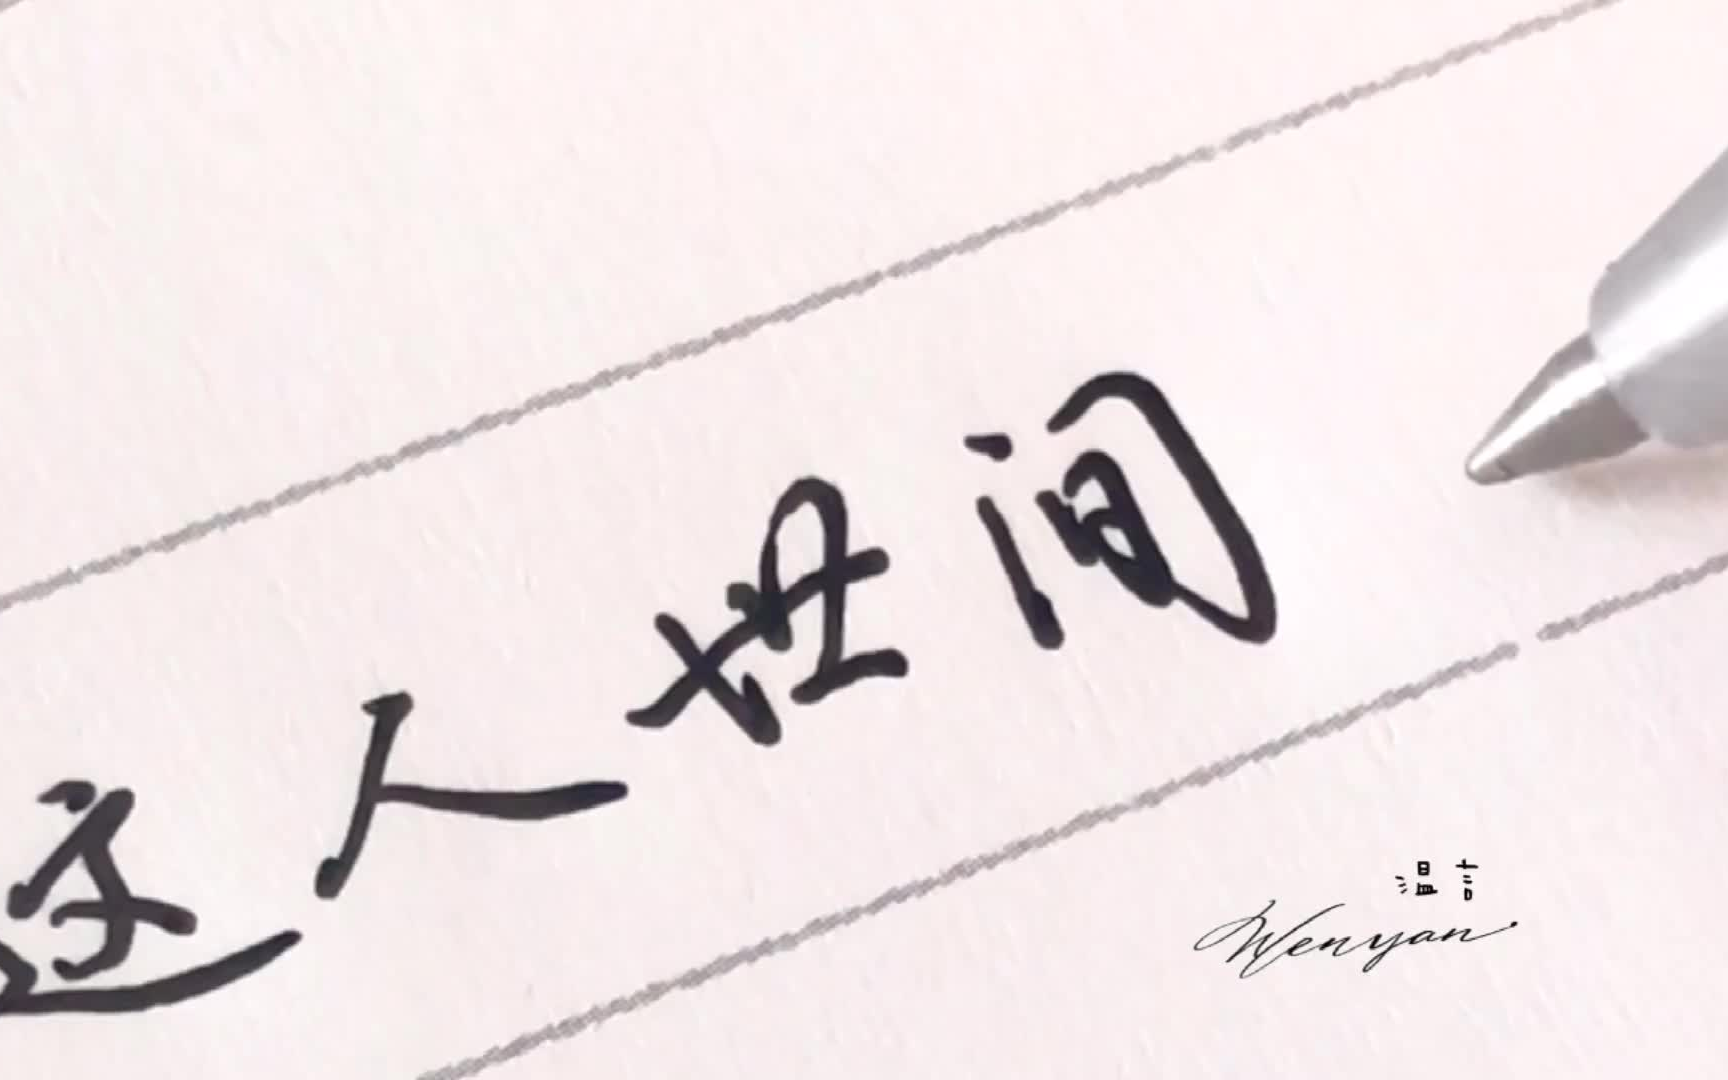 人世间
温言
Wenyan